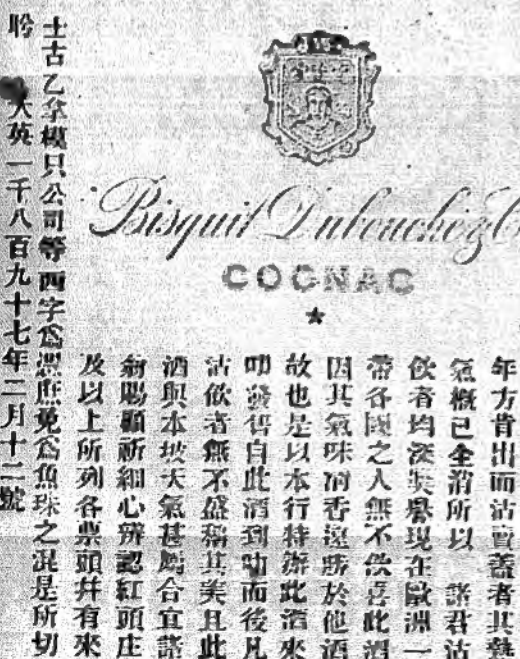 Bisquit Dubouché & C
COGNAC
年方肯出而沽賣蓋者其熱
氣概已全消所以 諸君沽
飲者均深獎譽現在歐洲一
帶各國之人無不飲喜此酒
因其氣味清香遠勝於他酒
故也是以本行特辦此酒來
叻發售自此酒到叻而後凡
沽飲者無不盛稱其美且此
酒與本坡天氣甚屬合宜諸
翁賜顧祈細心辨認紅頭庄
及以上所列各票頭并有來
士古乙拿模只公司等西字為憑庶免為魚珠之混是所切
聆 大英一千八百九十七年二月十二號